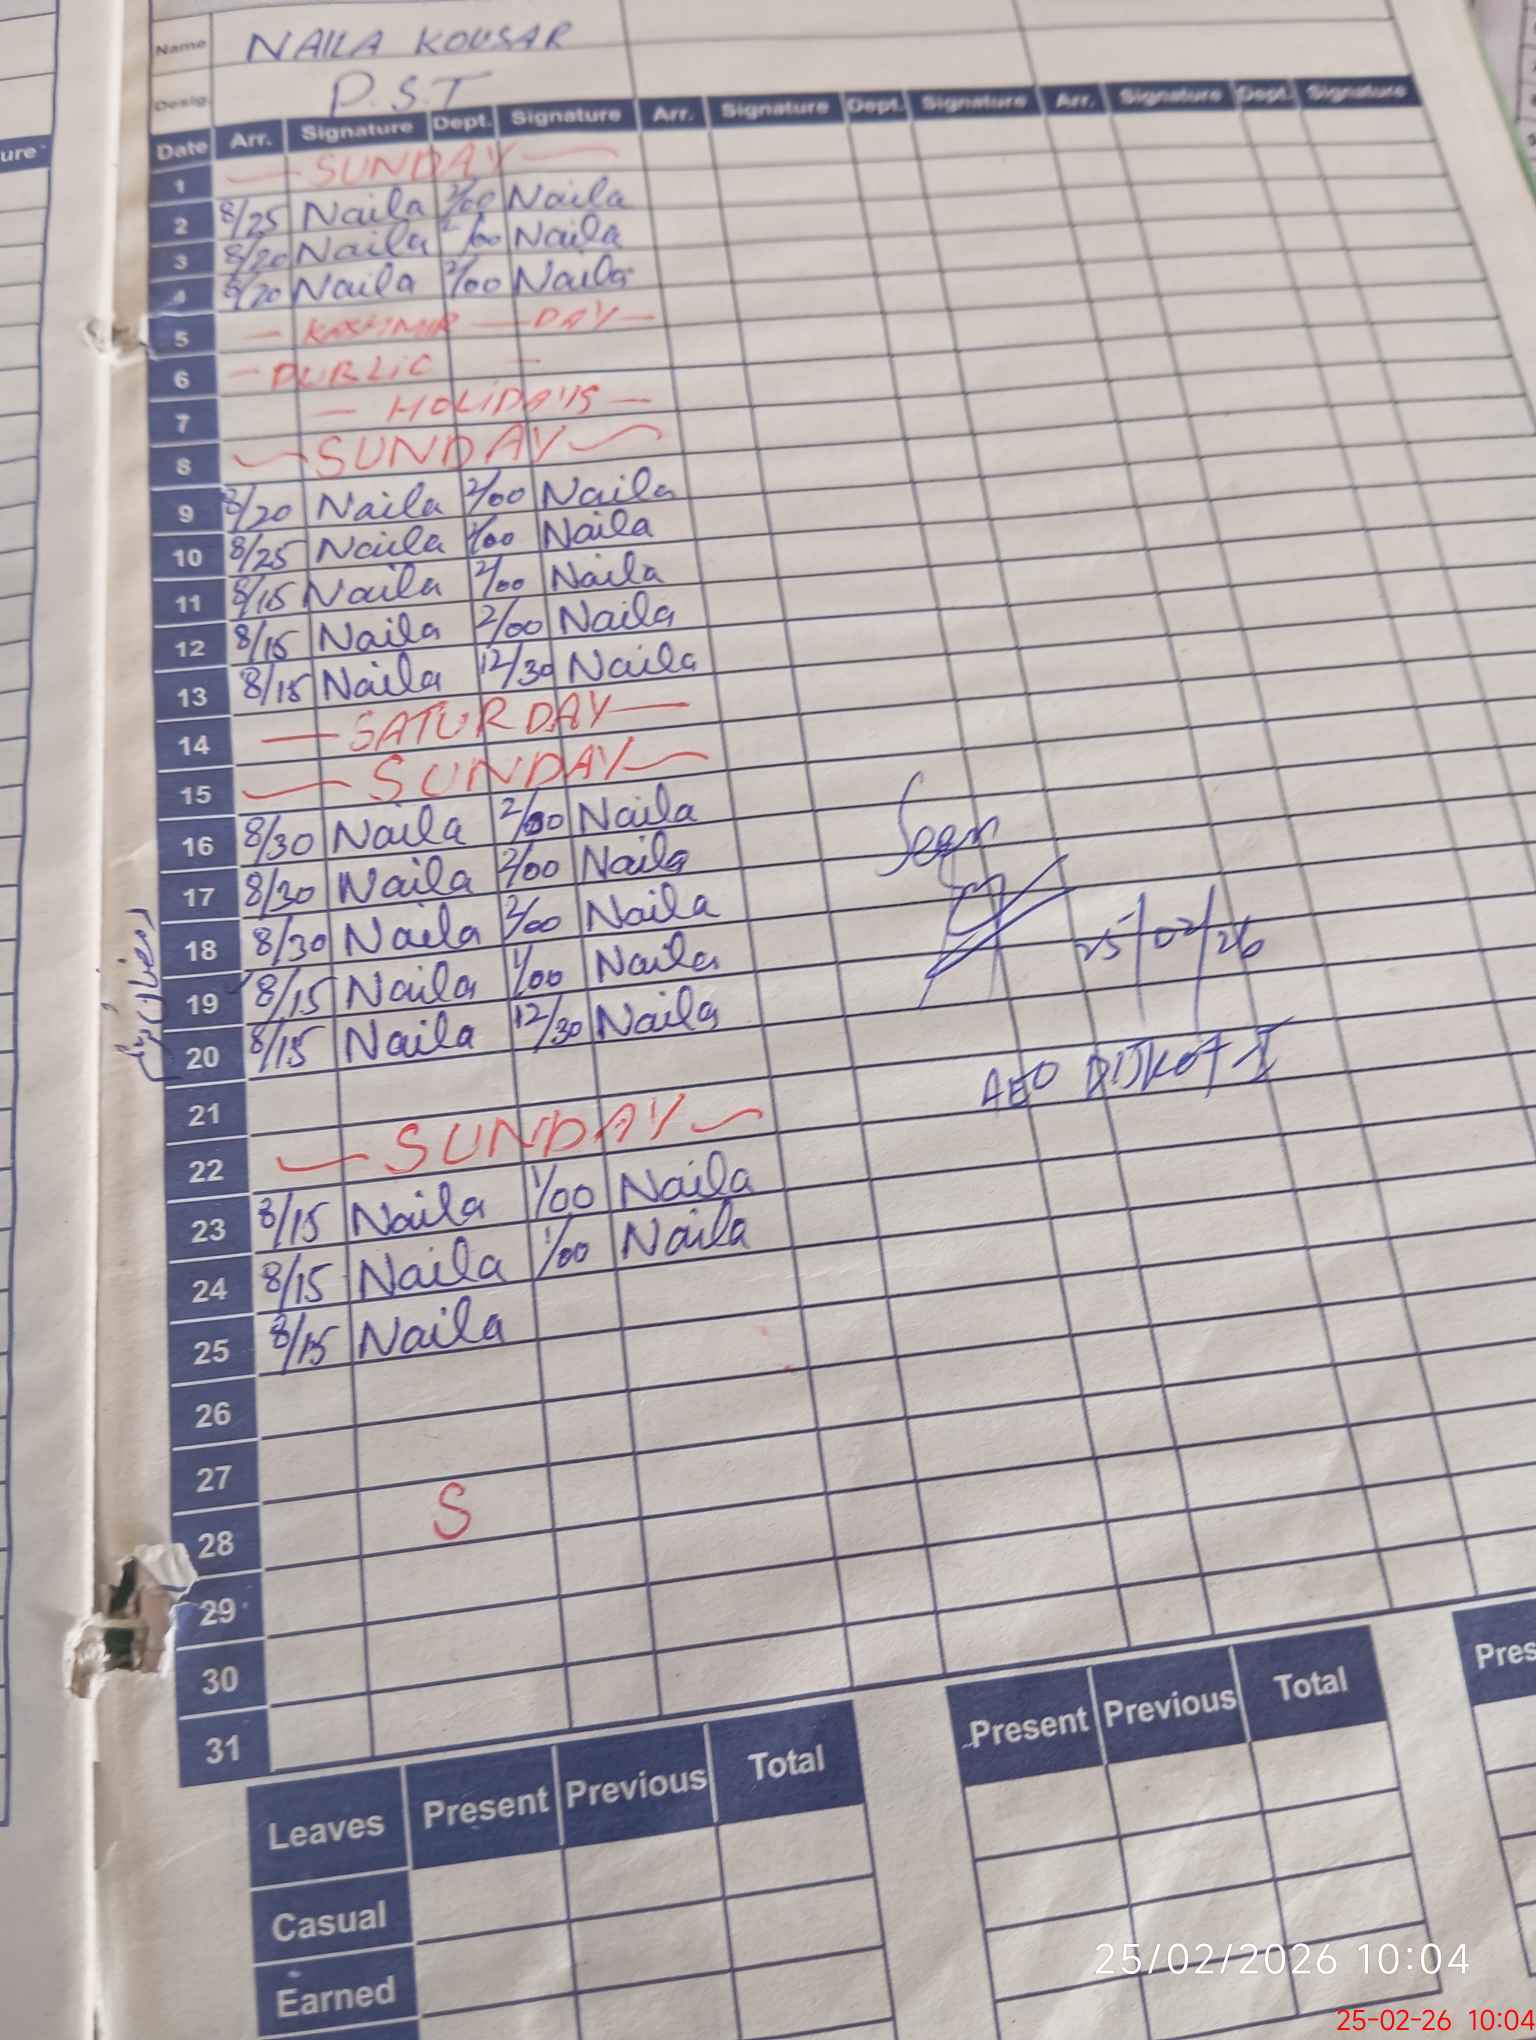 Name NAILA KOUSAR
Desig. P.S.T
Date Arr. Signature Dept. Signature Arr. Signature Dept. Signature Arr. Signature Dept. Signature
ure
1 — SUNDAY —
2 8/25 Naila 2/00 Naila
3 8/20 Naila 2/00 Naila
4 8/20 Naila 2/00 Naila
5 — KASHMIR — DAY —
6 — PUBLIC —
7 — HOLIDAYS —
8 — SUNDAY —
9 8/20 Naila 2/00 Naila
10 8/25 Naila 2/00 Naila
11 8/15 Naila 2/00 Naila
12 8/15 Naila 2/00 Naila
13 8/15 Naila 12/30 Naila
14 — SATURDAY —
15 — SUNDAY —
16 8/30 Naila 2/00 Naila
17 8/30 Naila 2/00 Naila
18 8/30 Naila 2/00 Naila
19 8/15 Naila 1/00 Naila
20 8/15 Naila 12/30 Naila
21
22 — SUNDAY —
23 8/15 Naila 1/00 Naila
24 8/15 Naila 1/00 Naila
25 8/15 Naila
26
27
28 S
29
30
31
Seen
25/02/26
AEO DIJKOT-I
Leaves Present Previous Total Present Previous Total Pres
Casual
Earned
25/02/2026 10:04
25-02-26 10:04